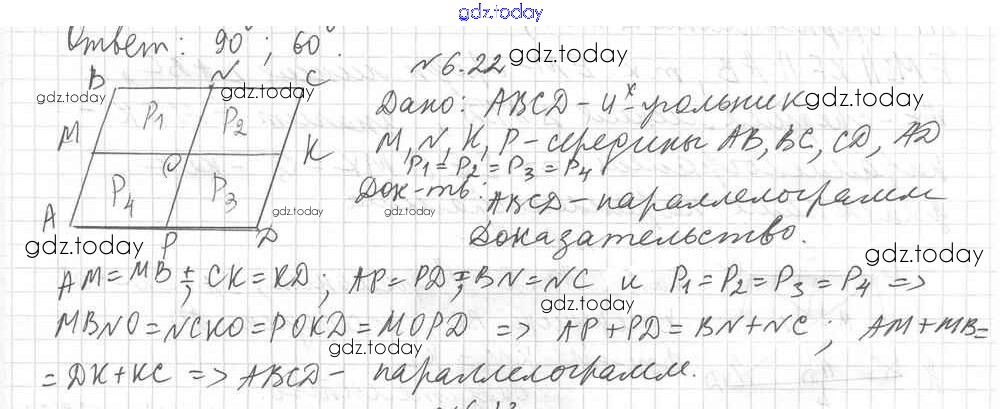 gdz.today
Ответ: 90°; 60°.
№6.22 gdz.today
B N C
gdz.today gdz.today
P1 P2
Дано: ABCD - 4х-угольник gdz.today
M, N, K, P - середины AB, BC, CD, AD
M O K
P1 = P2 = P3 = P4
P4 P3
Док-ть: ABCD - параллелограмм
gdz.today gdz.today
A P D
Доказательство.
gdz.today gdz.today
AM = MB ; CK = KD ; AP = PD ; BN = NC и P1 = P2 = P3 = P4 =>
gdz.today
MBNO = NCKO = POKD = MOPD => AP + PD = BN + NC ; AM + MB =
gdz.today
= DK + KC => ABCD - параллелограмм.